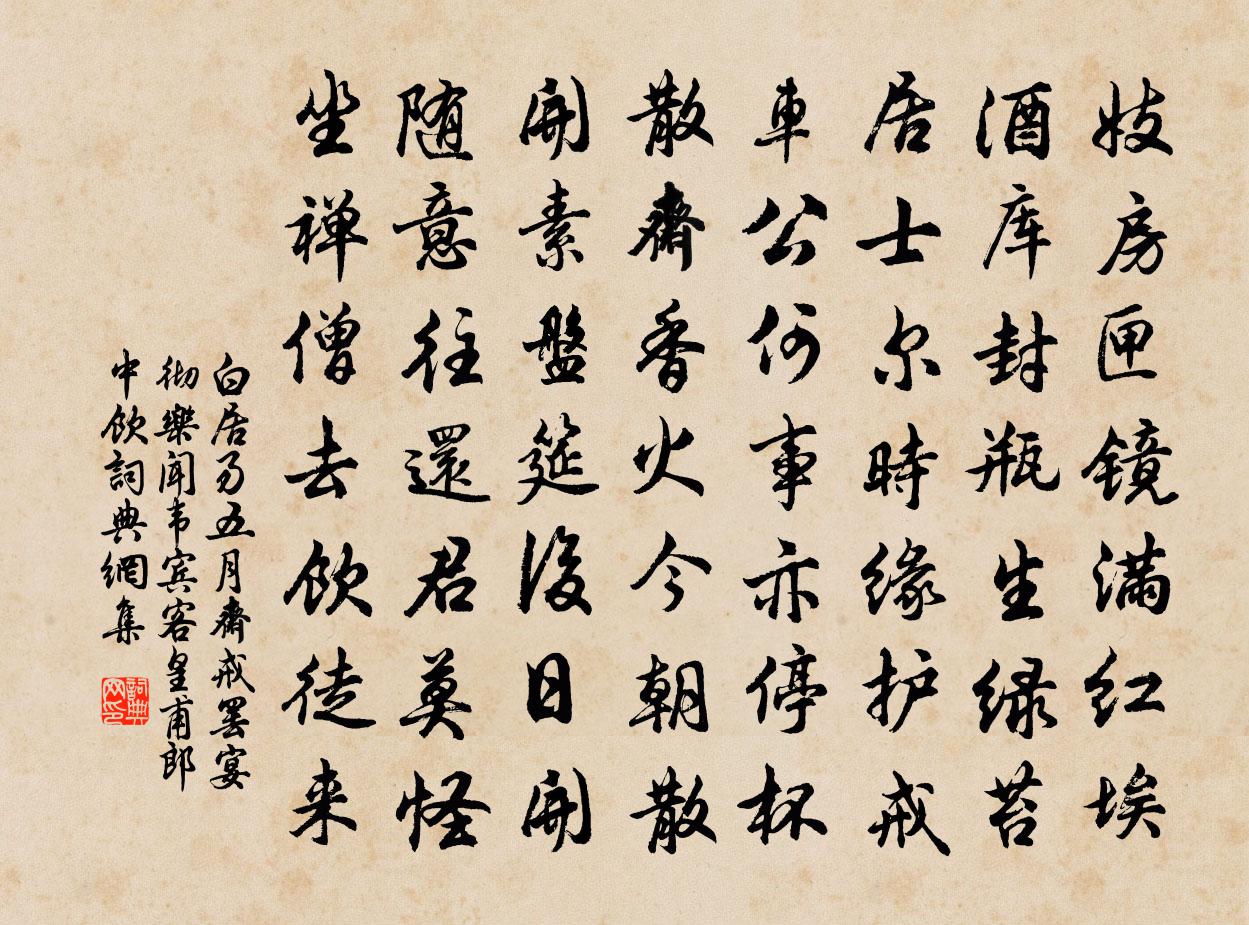 妓房匣镜满红埃
酒库封瓶生绿苔
居士尔時缘护戒
車公何事亦停杯
散齋香火今朝散
開素盤筵後日開
随意往還君莫怪
坐禅僧去飲徒来
白居易五月齋戒罢宴
彻樂闻韦宾客皇甫郎
中飲詞典網集
詞典
网印